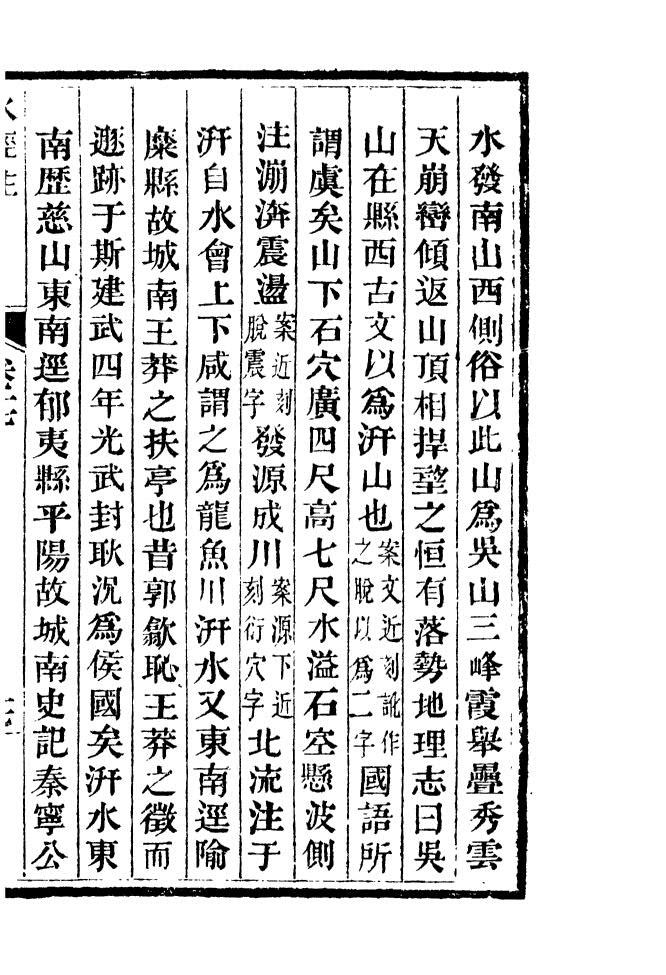 水發南山西側俗以此山爲吳山三峰霞舉疊秀雲
天崩巒傾返山頂相捍望之恒有落勢地理志曰吳
山在縣西古文以爲汧山也案文近刻訛作之脫以爲二字國語所
謂虞矣山下石穴廣四尺高七尺水溢石空懸波側
注漰渀震盪案近刻脫震字發源成川案源下近刻衍穴字北流注于
汧自水會上下咸謂之爲龍魚川汧水又東南逕隃
麋縣故城南王莽之扶亭也昔郭歙恥王莽之徵而
遯跡于斯建武四年光武封耿況爲侯國矣汧水東
南歷慈山東南逕郁夷縣平陽故城南史記秦寧公
水經注
卷十七